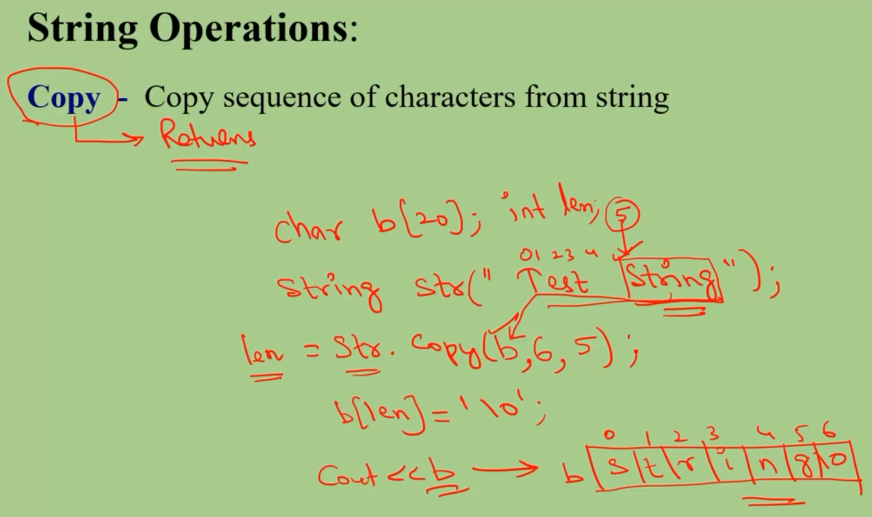 String Operations:
Copy - Copy sequence of characters from string
Returns
char b[20]; int len; 5
0 1 2 3 4
String str("Test String");
len = str.copy(b,6,5);
b[len]='\0';
0 1 2 3 4 5 6
cout<<b → b s t r i n g \0